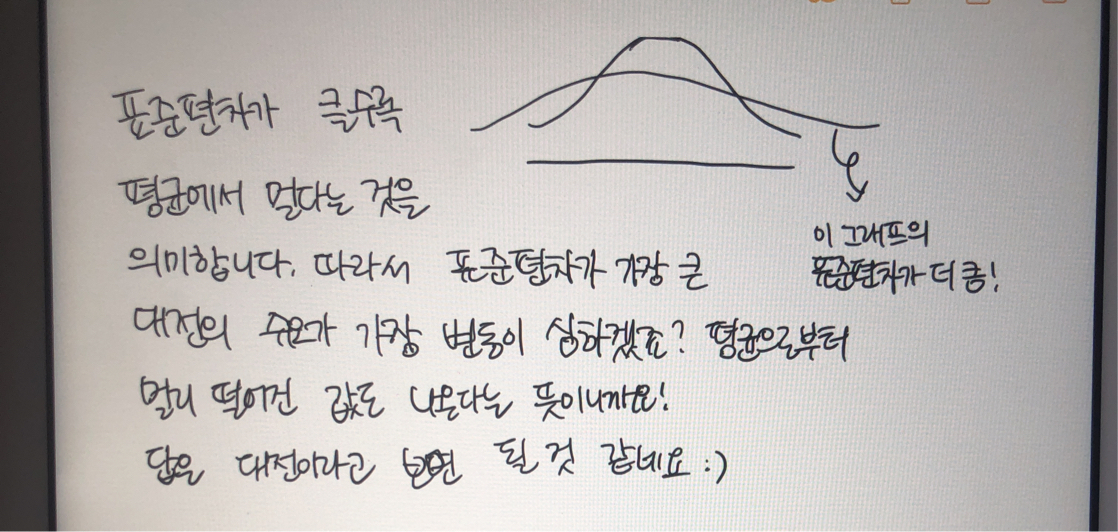 표준편차가 클수록
평균에서 멀다는 것을
이 그래프의
표준편차가 더 큼!
의미합니다. 따라서 표준편차가 가장 큰
대전의 수요가 가장 변동이 심하겠죠? 평균으로부터
멀리 떨어진 값도 나온다는 뜻이니까요!
답은 대전이라고 보면 될 것 같네요 :)